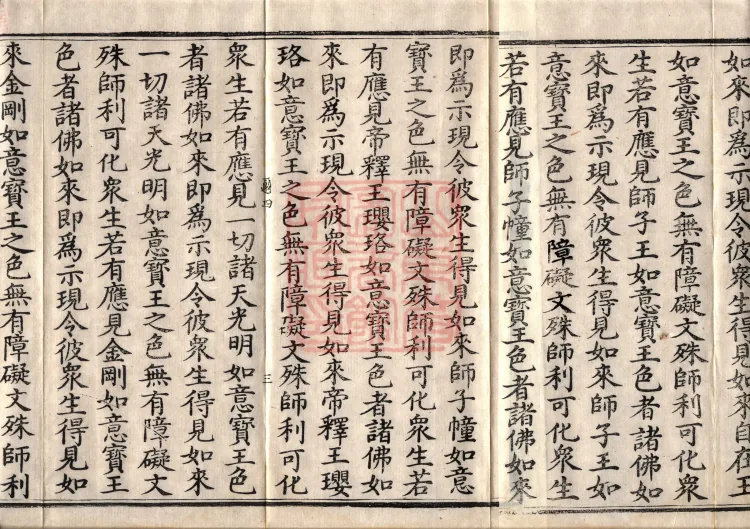 如來即爲示現令彼衆生得見如來自在王
如意寶王之色無有障礙文殊師利可化衆
生若有應見師子王如意寶王色者諸佛如
來即爲示現令彼衆生得見如來師子王如
意寶王之色無有障礙文殊師利可化衆生
若有應見師子幢如意寶王色者諸佛如來
即爲示現令彼衆生得見如來師子幢如意
寶王之色無有障礙文殊師利可化衆生若
有應見帝釋王瓔珞如意寶王色者諸佛如
來即爲示現令彼衆生得見如來帝釋王瓔
珞如意寶王之色無有障礙文殊師利可化
三
衆生若有應見一切諸天光明如意寶王色
者諸佛如來即爲示現令彼衆生得見如來
一切諸天光明如意寶王之色無有障礙文
殊師利可化衆生若有應見金剛如意寶王
色者諸佛如來即爲示現令彼衆生得見如
來金剛如意寶王之色無有障礙文殊師利